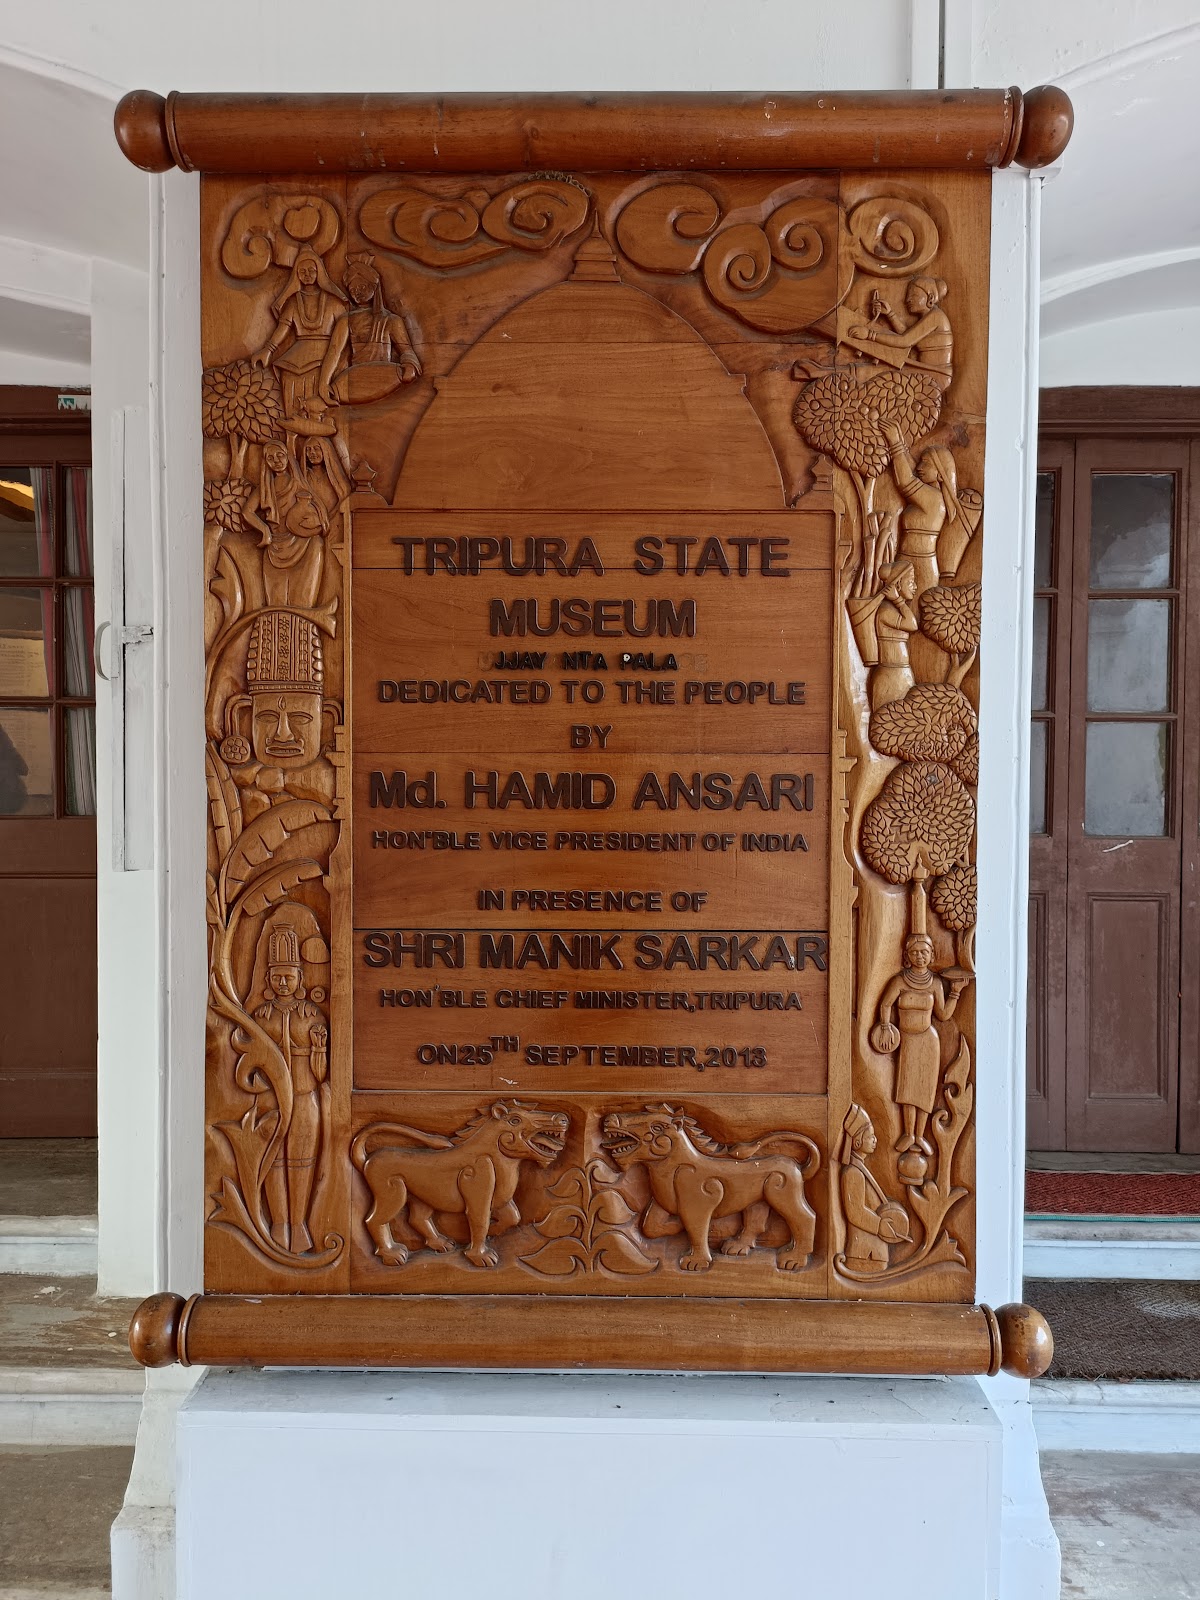 TRIPURA STATE
MUSEUM
UJJAY NTA PALACE
DEDICATED TO THE PEOPLE
BY
Md. HAMID ANSARI
HON'BLE VICE PRESIDENT OF INDIA
IN PRESENCE OF
SHRI MANIK SARKAR
HON'BLE CHIEF MINISTER, TRIPURA
ON 25TH SEPTEMBER, 2013